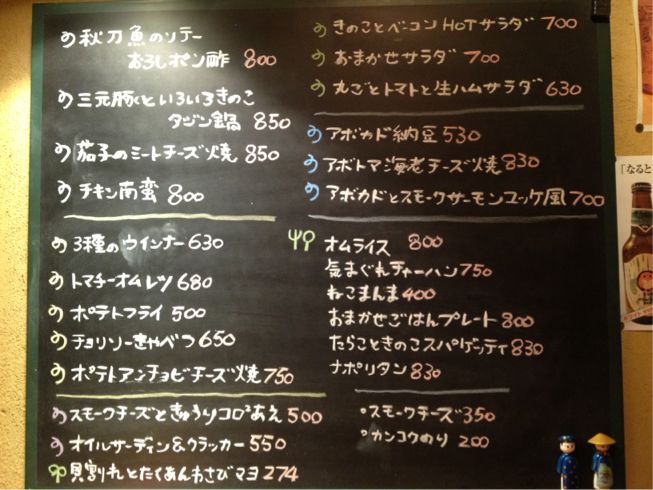 秋刀魚のソテー
おろしポン酢 800
三元豚といろいろきのこ
タジン鍋 850
茄子のミートチーズ焼 850
チキン南蛮 800
3種のウインナー 630
トマチーオムレツ 680
ポテトフライ 500
チョリソーきゃべつ 650
ポテトアンチョビチーズ焼 750
スモークチーズときゅうりコロコロあえ 500
オイルサーディン&クラッカー 550
貝割れとたくあんわさびマヨ 274
きのことベーコンHOTサラダ 700
おまかせサラダ 700
丸ごとトマトと生ハムサラダ 630
アボカド納豆 530
アボトマ海老チーズ焼 830
アボカドとスモークサーモンユッケ風 700
オムライス 800
気まぐれチャーハン 750
ねこまんま 400
おまかせごはんプレート 800
たらこときのこスパゲッティ 830
ナポリタン 830
スモークチーズ 350
カンコクのり 200
「なると